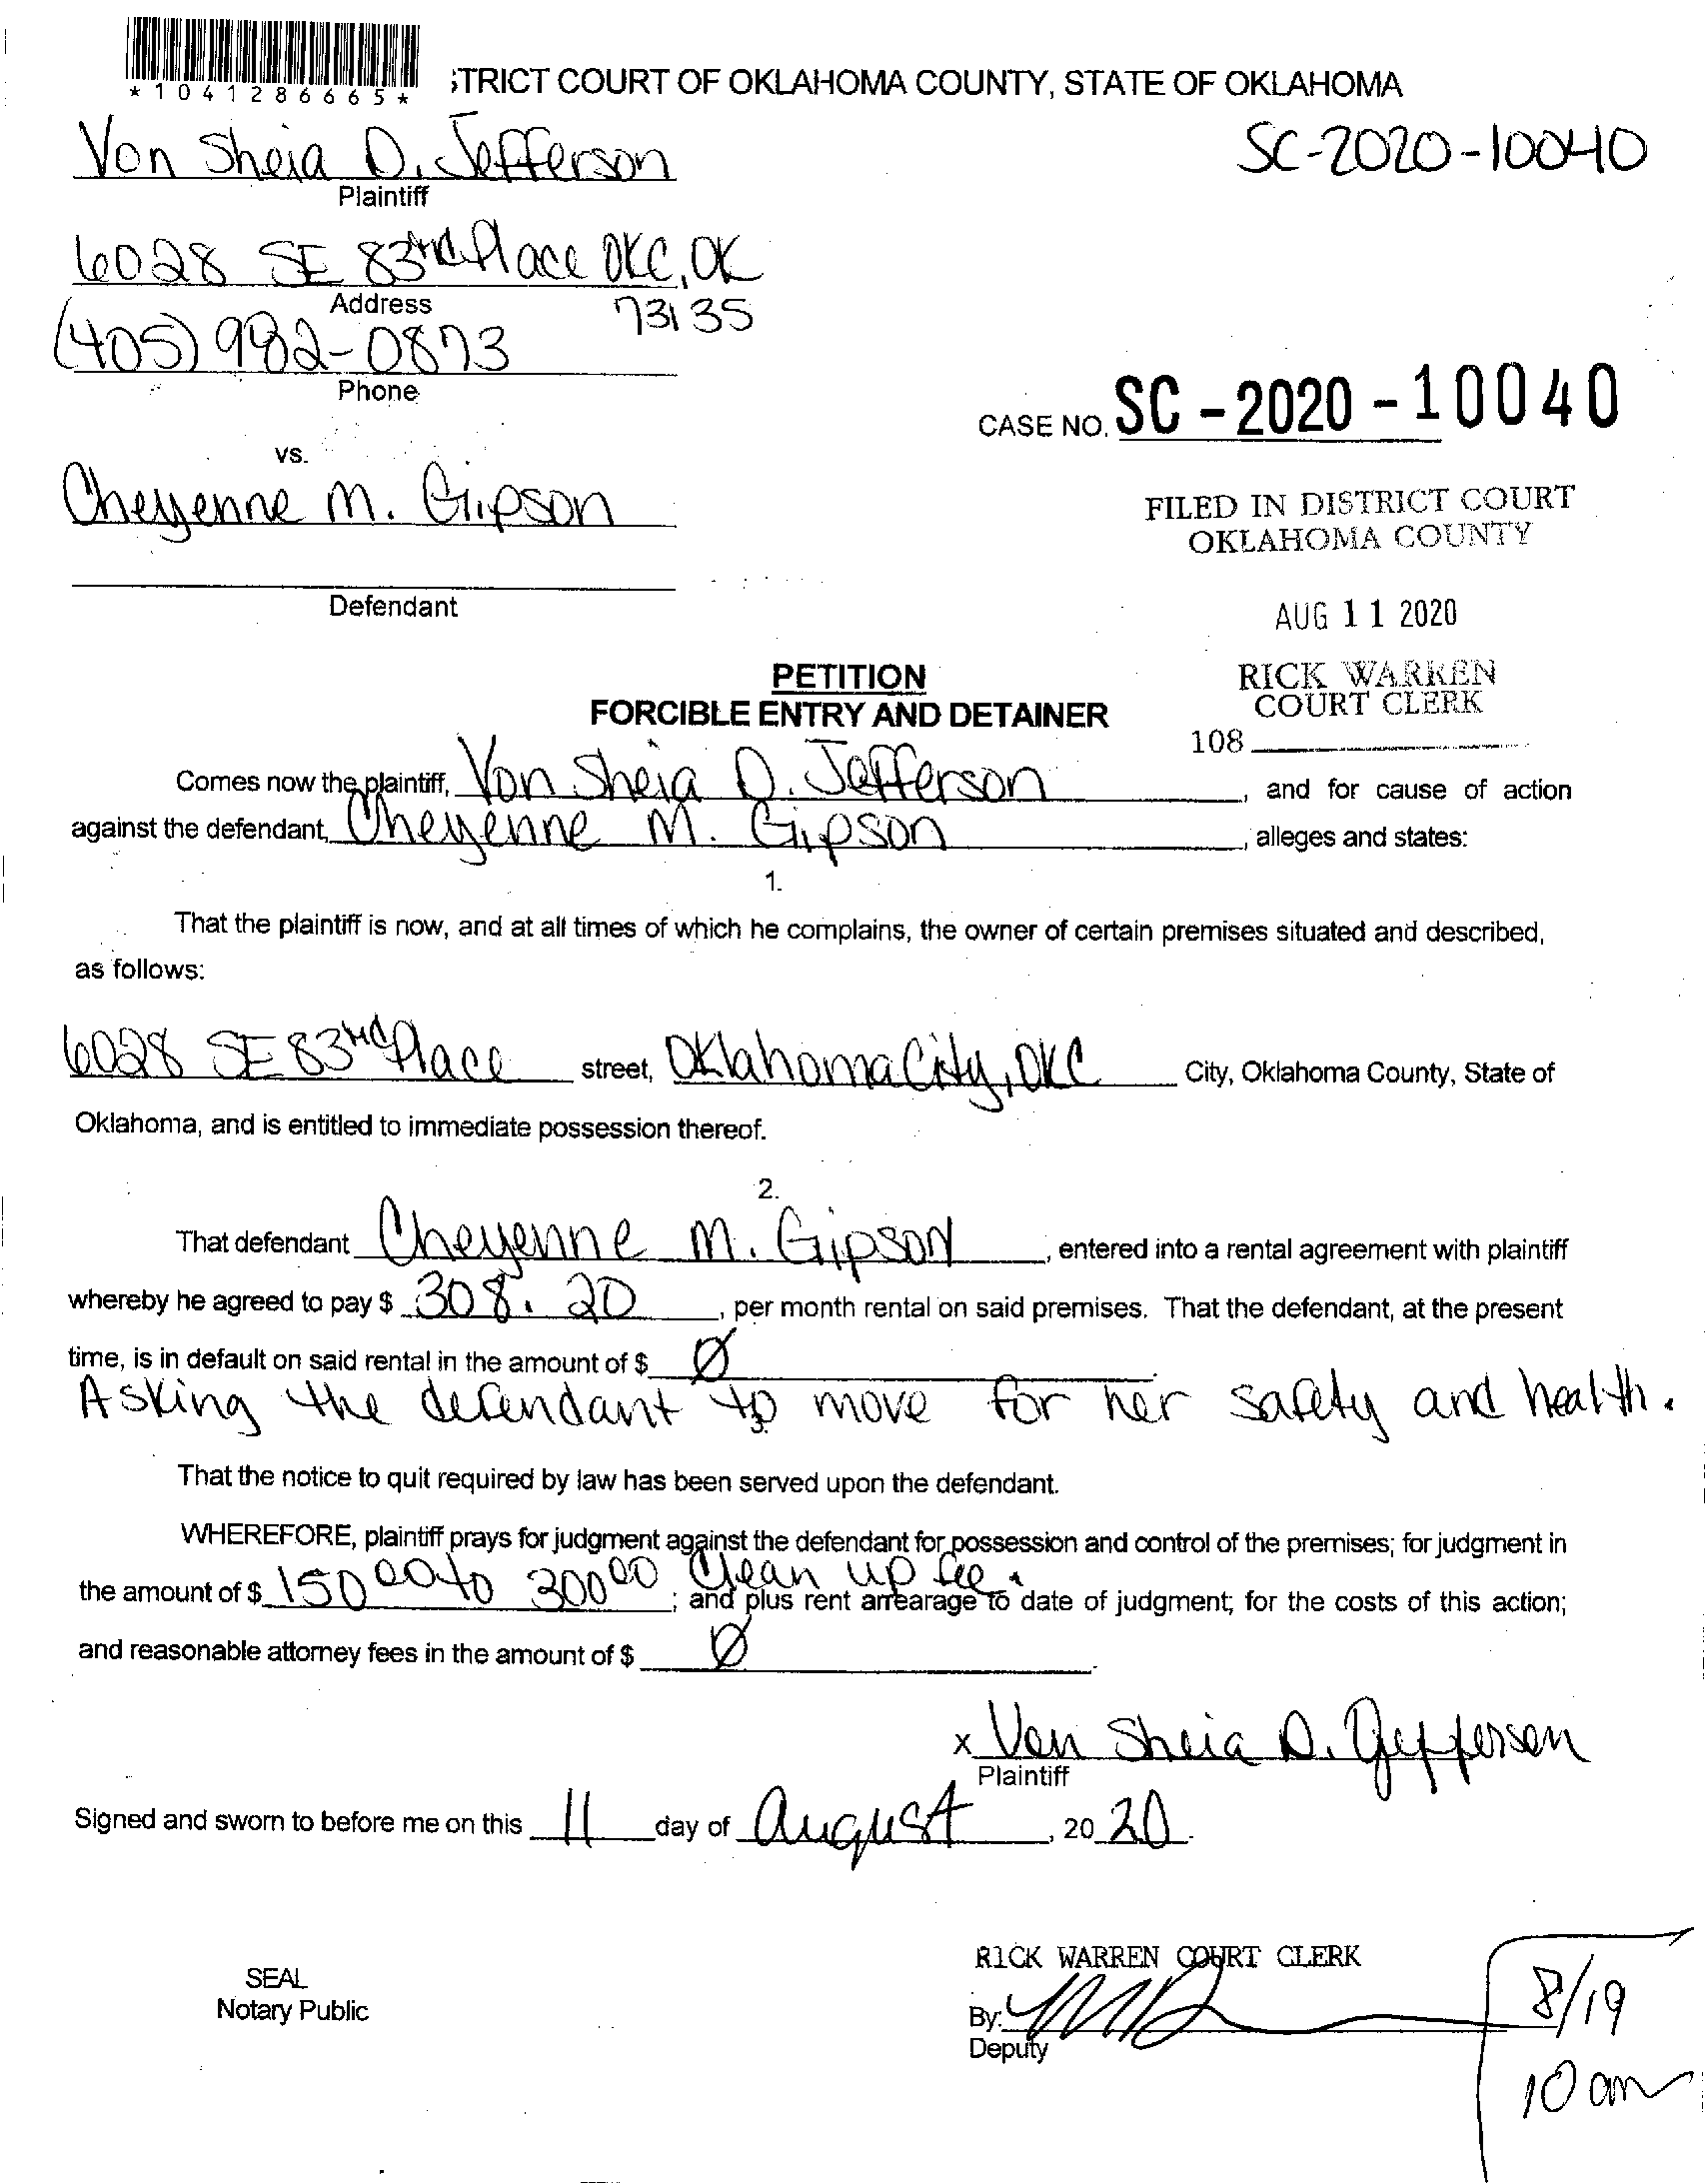 *1041286665*
STRICT COURT OF OKLAHOMA COUNTY, STATE OF OKLAHOMA
Von Sheia D. Jefferson
SC-2020-10040
Plaintiff
6028 SE 83rd Place OKC, OK
Address
73135
(405) 982-0873
Phone
CASE NO. SC-2020-10040
vs.
Cheyenne M. Gipson
FILED IN DISTRICT COURT
OKLAHOMA COUNTY
Defendant
AUG 11 2020
PETITION
RICK WARREN
COURT CLERK
FORCIBLE ENTRY AND DETAINER
108
Comes now the plaintiff, Von Sheia D. Jefferson, and for cause of action
against the defendant, Cheyenne M. Gipson, alleges and states:
1.
That the plaintiff is now, and at all times of which he complains, the owner of certain premises situated and described,
as follows:
6028 SE 83rd Place street, Oklahoma City, OKC City, Oklahoma County, State of
Oklahoma, and is entitled to immediate possession thereof.
2.
That defendant Cheyenne M. Gipson, entered into a rental agreement with plaintiff
whereby he agreed to pay $ 308.20, per month rental on said premises. That the defendant, at the present
time, is in default on said rental in the amount of $ Ø.
Asking the defendant to move for her safety and health.
3.
That the notice to quit required by law has been served upon the defendant.
WHEREFORE, plaintiff prays for judgment against the defendant for possession and control of the premises; for judgment in
the amount of $ 150 00 to 300 00 Clean up fee.; and plus rent arrearage to date of judgment; for the costs of this action;
and reasonable attorney fees in the amount of $ Ø.
x Von Sheia D. Jefferson
Plaintiff
Signed and sworn to before me on this 11 day of August, 20 20.
RICK WARREN COURT CLERK
SEAL
Notary Public
By:
Deputy
8/19
10 am